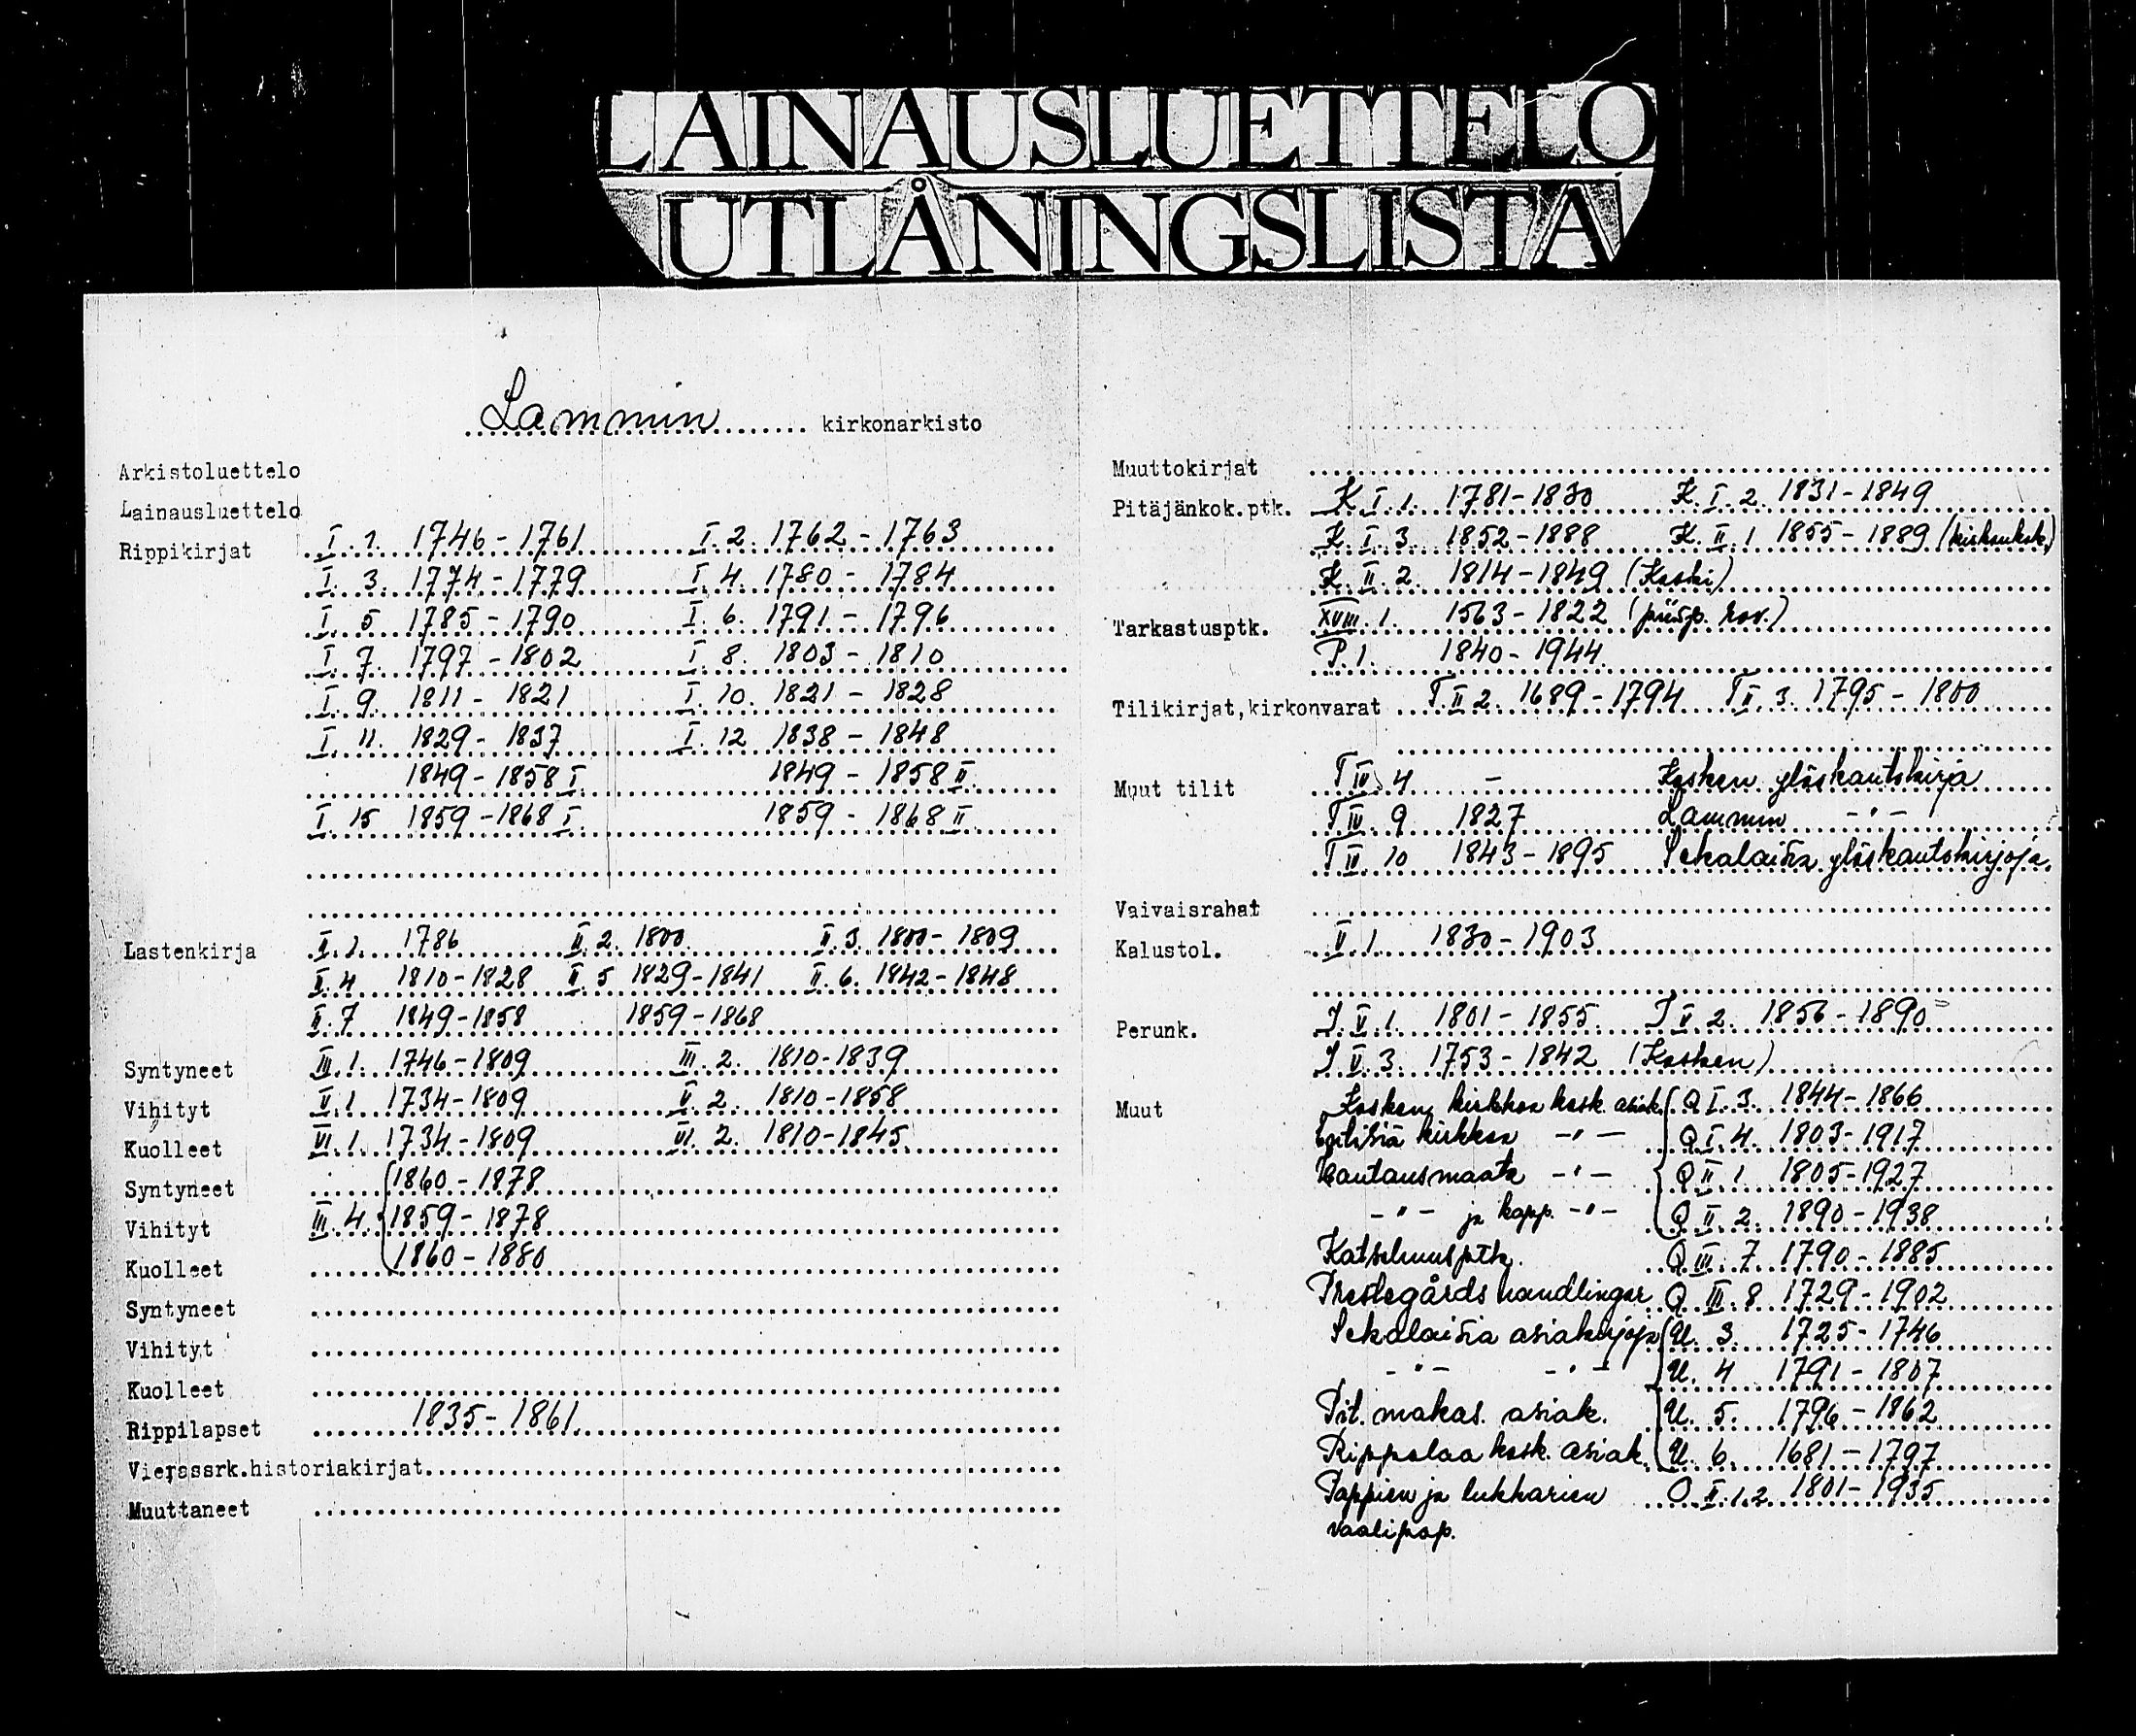 LAINAUSLUETTELO
UTLÅNINGSLISTA
Lammin kirkonarkisto
Arkistoluettelo
Lainausluettelo
Rippikirjat I. 1. 1746-1761 I. 2. 1762-1763
I. 3. 1774-1779 I. 4. 1780-1784
I. 5 1785-1790 I. 6. 1791-1796
I. 7. 1797-1802 I. 8. 1803-1810
I. 9. 1811-1821 I. 10. 1821-1828
I. 11. 1829-1837 I. 12 1838-1848
1849-1858 I 1849-1858 II
I. 15 1859-1868 I 1859-1868 II
Lastenkirja II. 1. 1786 II. 2. 1800 II. 3. 1800-1809
II. 4 1810-1828 II. 5 1829-1841 II. 6. 1842-1848
II. 7 1849-1858 1859-1868
Syntyneet III. 1. 1746-1809 III. 2. 1810-1839
Vihityt V. 1 1734-1809 V. 2. 1810-1858
Kuolleet VI. 1. 1734-1809 VI. 2. 1810-1845
Syntyneet 1860-1878
Vihityt III. 4. 1859-1878
Kuolleet 1860-1880
Syntyneet
Vihityt
Kuolleet
Rippilapset 1835-1861
Vierassrk.historiakirjat
Muuttaneet
Muuttokirjat
Pitäjänkok.ptk. K I. 1. 1781-1830 K. I. 2. 1831-1849
K. I. 3. 1852-1888 K. II. 1 1855-1889 (kirkonkok.)
K. II. 2. 1814-1849 (Koski)
Tarkastusptk. XVIII. 1. 1563-1822 (piisp. )
P. 1. 1840-1944
Tilikirjat, kirkonvarat T II 2. 1689-1794 T II. 3. 1795-1800
Muut tilit T IV 4 - Kosken ylöskantokirja
T IV. 9 1827 Lammin -"-
T IV 10 1843-1895 Sekalaisia ylöskantokirjoja
Vaivaisrahat
Kalustol. V. 1. 1830-1903
Perunk. J. V. 1. 1801-1855 J V 2. 1856-1890
J V. 3. 1753-1842 (Kosken)
Muut Kosken kirkkoa kosk. asiak. Q I. 3. 1844-1866
kirkkoa -"- Q I. 4. 1803-1917
Hautausmaata -"- Q II 1 1805-1927
-"- ja kapp. -"- Q II. 2. 1890-1938
Katselmusptk. Q III. 7 1790-1885
Prestegårds handlingar Q III. 8 1729-1902
Sekalaisia asiakirjoja U. 3. 1725-1746
-"- -"- U. 4 1791-1807
Pit. makas. asiak. U. 5. 1796-1862
Rippolaa kosk. asiak. U. 6. 1681-1797
Pappien ja lukkarien O II. 1.2 1801-1935
vaalipap.